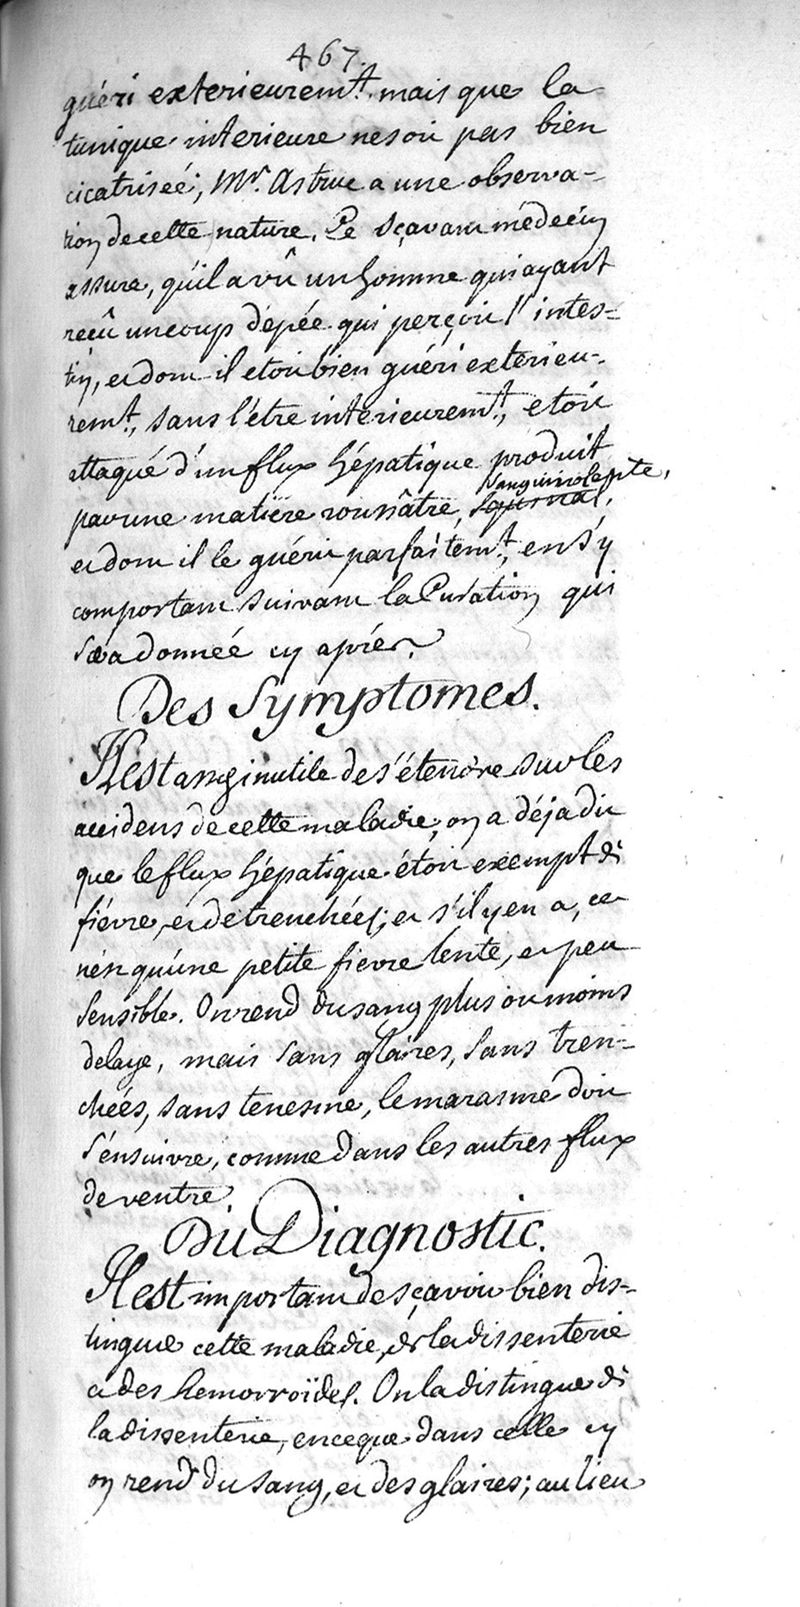 467.
guéri exterieurem.t mais que la
tunique interieure ne soit pas bien
cicatriseé; Mr. Astruc a une observa-
tion de cette nature. Ce sçavant médecin
assure, qu'il a vû un homme qui ayant
reçû un coup d'épée qui perçoit l'intes=
tin, et dont il etoit bien guéri exterieu-
rem.t, sans l'étre interieurem.t, etoit
attaqué d'un flux hépatique produit
sanguinolente,
par une matiere roussâtre,
et dont il le guérit parfaitem.t, en s'y
comportant suivant la Curation qui
sera donneé cy aprés.
Des Symptomes.
Il est assez inutile de s'étendre sur les
accidens de cette maladie, on a déja dit
que le flux hépatique étoit exempt de
fiévre, et de trenchées; et s'il y en a, ce
n'ést qu'une petite fievre lente, et peu
sensible. On rend du sang plus ou moins
delayé, mais sans glaires, sans tren-
cheés, sans tenesme, le marasme doit
s'énsuivre, comme dans les autres flux
de ventre.
Du Diagnostic.
Il est important de sçavoir bien dis-
tinguer cette maladie, de la dissenterie
et des hemorroïdes. On la distingue de
la dissenterie, en ce que dans celle cy
on rend du sang, et des glaires; au lieu